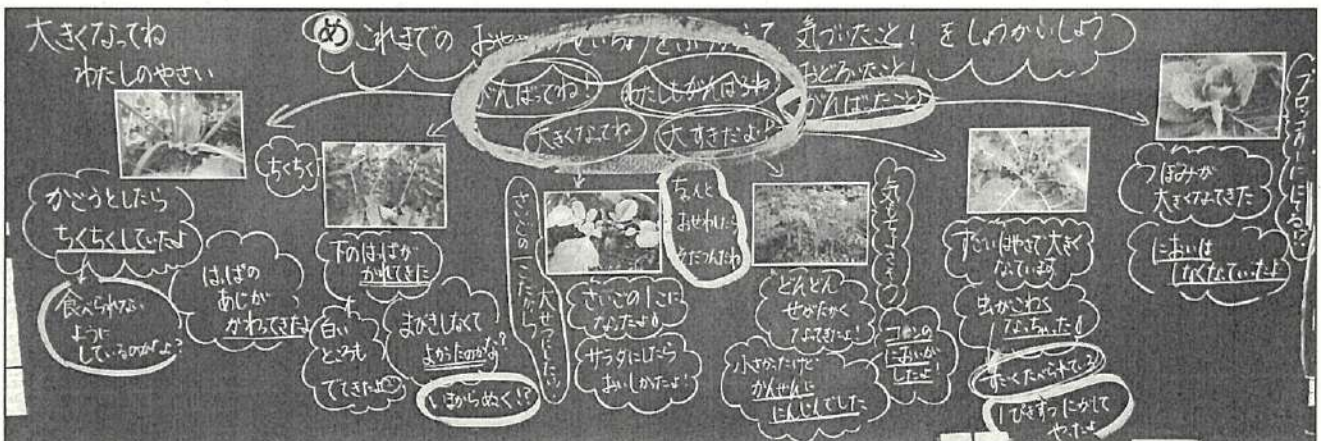 大きくなってね
わたしのやさい
め これまでの おやさいのせいちょうを 気づいたこと! をしょうかいしよう
おどろいたこと!
がんばったこと
がんばってね!
わたしもがんばるね
大きくなってね
大すきだよ!
かごうとしたら
ちくちくしていたよ
食べられない
ように
しているのかな?
はっぱの
あじが
かわってきたよ
ちくちく
下のはっぱが
かれてきた
白い
ところも
でてきたよ
まびきしなくて
よかったのかな?
いまからぬく!?
さいごの1こだから
大せつにしたい
さいごの1こに
なったよ
サラダにしたら
おいしかったよ!
ちゃんと
おせわしたら
そだつんだね
どんどん
せがたかく
なってきたよ!
小さかったけど
かんぜんに
にんじんでした
気もちよさそう
においが
したよ!
すごいはやさで大きく
なっています
虫がこわく
なっちゃった
すごくたべられている
1ぴきずつにがして
やったよ
つぼみが
大きくなってきた
においは
しなくなっていったよ
ブロッコリーににてるね